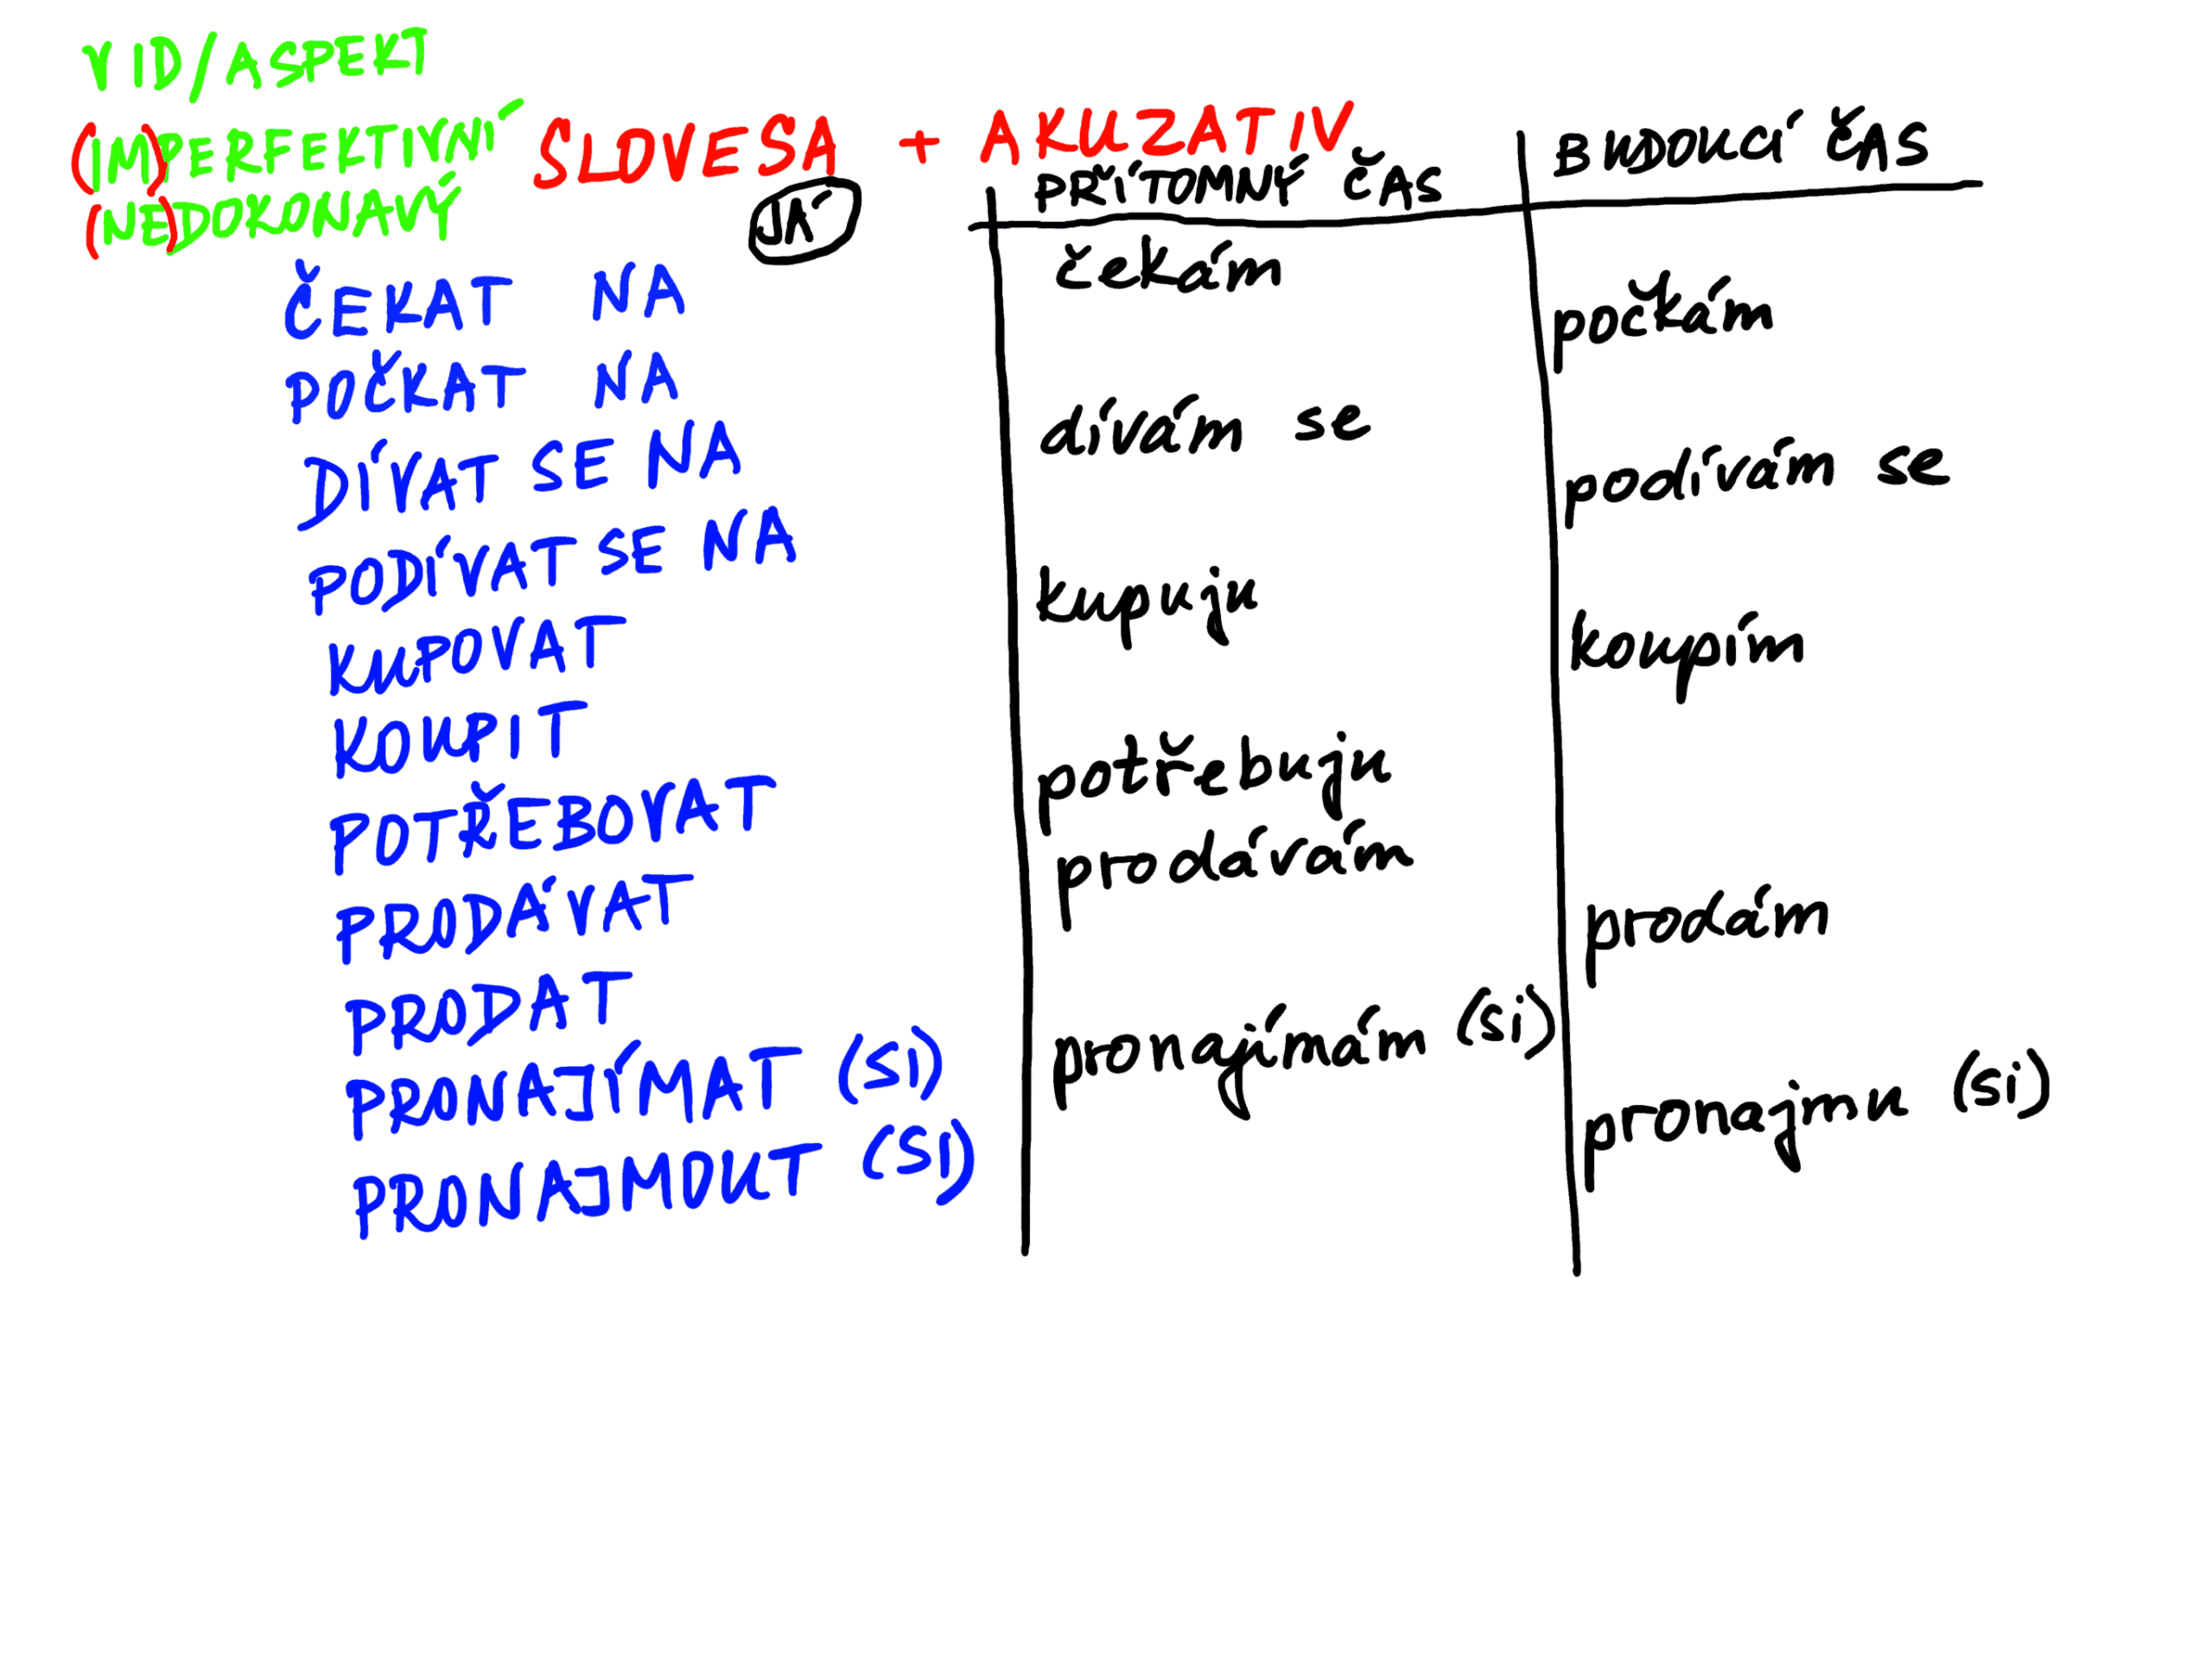 VID/ASPEKT
(IM)PERFEKTIVNÍ
(NE)DOKONAVÝ
SLOVESA + AKUZATIV
JÁ
PŘÍTOMNÝ ČAS
BUDOUCÍ ČAS
ČEKAT NA
čekám
POČKAT NA
počkám
DÍVAT SE NA
dívám se
PODÍVAT SE NA
podívám se
KUPOVAT
kupuju
KOUPIT
koupím
POTŘEBOVAT
potřebuju
PRODÁVAT
prodávám
PRODAT
prodám
PRONAJÍMAT (SI)
pronajímám (si)
PRONAJMOUT (SI)
pronajmu (si)